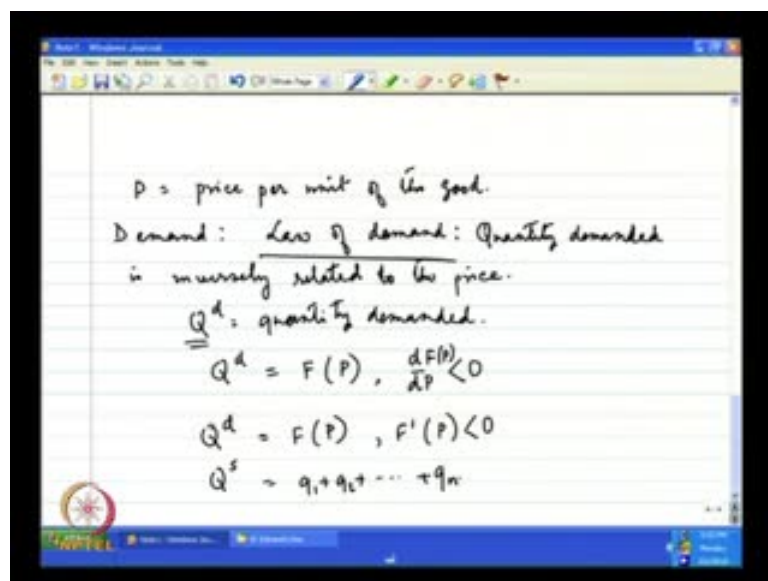 Note1 - Windows Journal
P = price per unit of the good.
Demand : Law of demand : Quantity demanded
is inversely related to the price.
Q^d = quantity demanded.
Q^d = F(P), dF(P)/dP < 0
Q^d = F(P), F'(P) < 0
Q^s = q₁ + q₂ + ... + qₙ
NPTEL